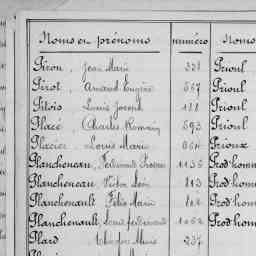 Noms en prénoms numéro Noms
Piron, Jean Marie 331 Prioul
Pirot, Armand Eugène 567 Prioul
Pitois Louis Joseph 188 Prioul
Placé, Charles Romain 593 Prioul
Placier, Louis Marie 864 Prioux
Plancheneau, Ferdinand Prosper 1135 Prodhom
Plancheneau Victor Léon 813 Prodhom
Planchenault Félix Marie 108 Prodhom
Planchenault, Louis Ferdinand 1062 Prodhom
Plard 237